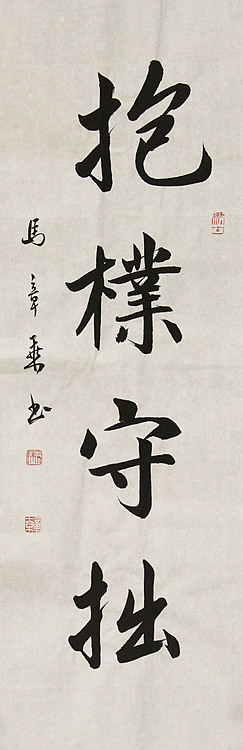 抱樸守拙
馬章乘书